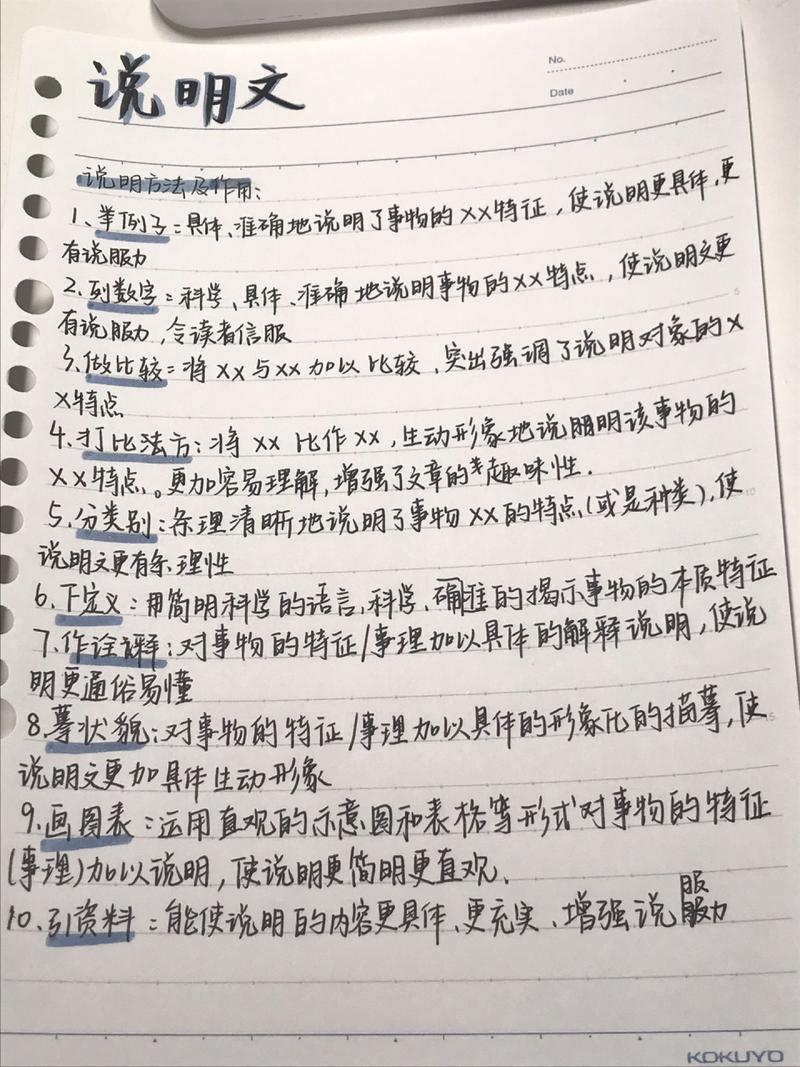 说明文
No.
Date
说明方法及作用:
1、举例子:具体、准确地说明了事物的XX特征,使说明更具体,更
有说服力
2.列数字:科学、具体、准确地说明事物的XX特点,使说明文更
有说服力,令读者信服
5
3.做比较:将XX与XX加以比较,突出强调了说明对象的X
X特点
4.打比法方:将XX比作XX,生动形象地说明明该事物的
XX特点。更加容易理解,增强了文章的趣味性.
10
5.分类别:条理清晰地说明了事物XX的特点(或是种类),使
说明文更有条理性
6.下定义:用简明科学的语言,科学、确准的揭示事物的本质特征
7.作诠释:对事物的特征/事理加以具体的解释说明,使说
明更通俗易懂
8.摹状貌:对事物的特征/事理加以具体的形象化的描摹,使
15
说明文更加具体生动形象
9.画图表:运用直观的示意图和表格等形式对事物的特征
(事理)加以说明,使说明更简明更直观.
10.引资料:能使说明的内容更具体、更充实、增强说服力
KOKUYO